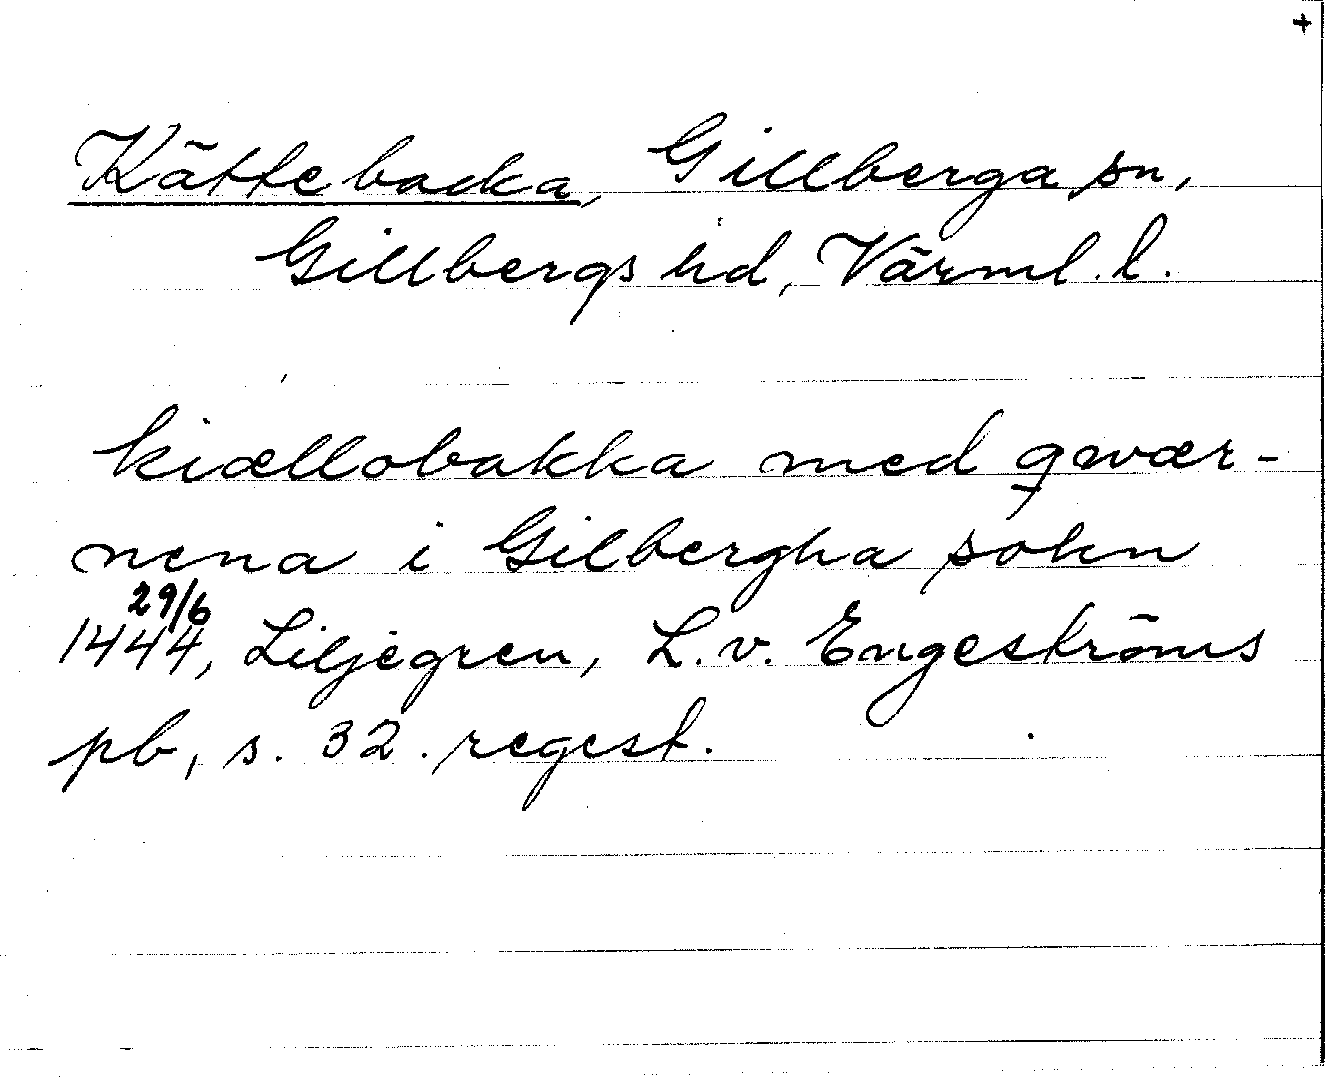 +
Kättebacka, Gillberga sn,
Gillbergs hd, Värml. l.
kiællobakka med qwær-
nena i Gilbergha sokn
29/6
1444, Liljegren, L. v. Engeströms
pb, s. 32. regest.